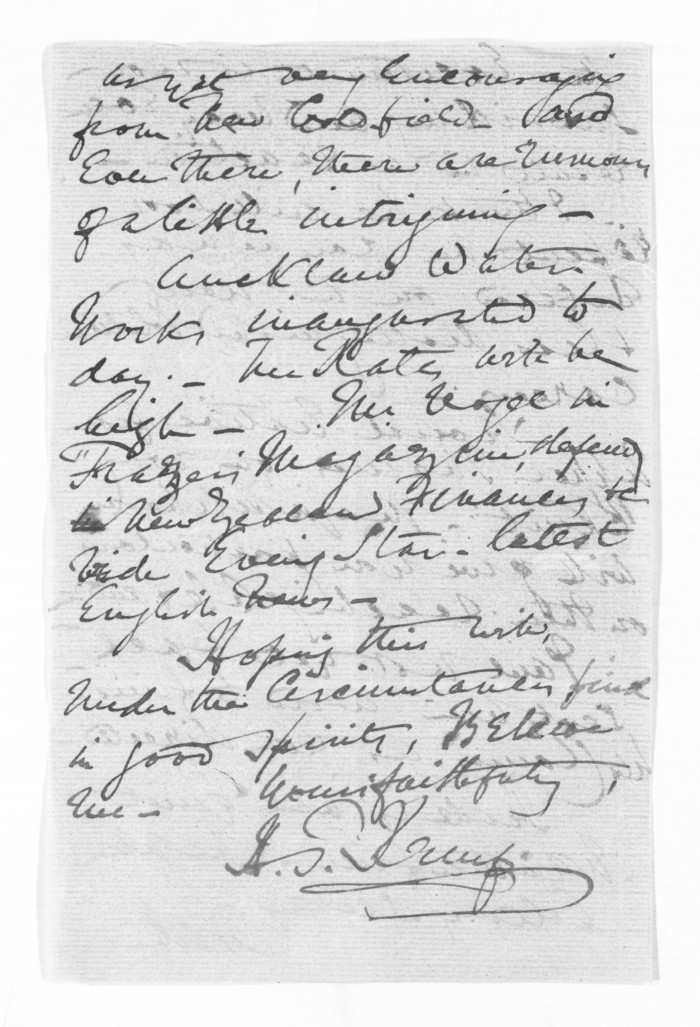 as yet very Encouraging
from New Gold field - and
Even there, there are rumours
of a little intriguing -
Auckland Water
Works inaugurated to
day. - The Rates will be
high - Mr Vogel in
"Frazers Magazine, defend
New Zealand Finances &c
Vide Evening Star - latest
English News -
Hoping this will,
under the Circumstances find
in good Spirits, Believe
me - Yours faithfully,
H. S.